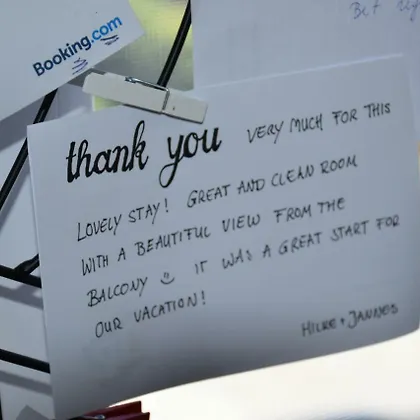 Booking.com
thank you VERY MUCH FOR THIS
LOVELY STAY! GREAT AND CLEAN ROOM
WITH A BEAUTIFUL VIEW FROM THE
BALCONY ☺ IT WAS A GREAT START FOR
OUR VACATION!
HILKE + JANNES